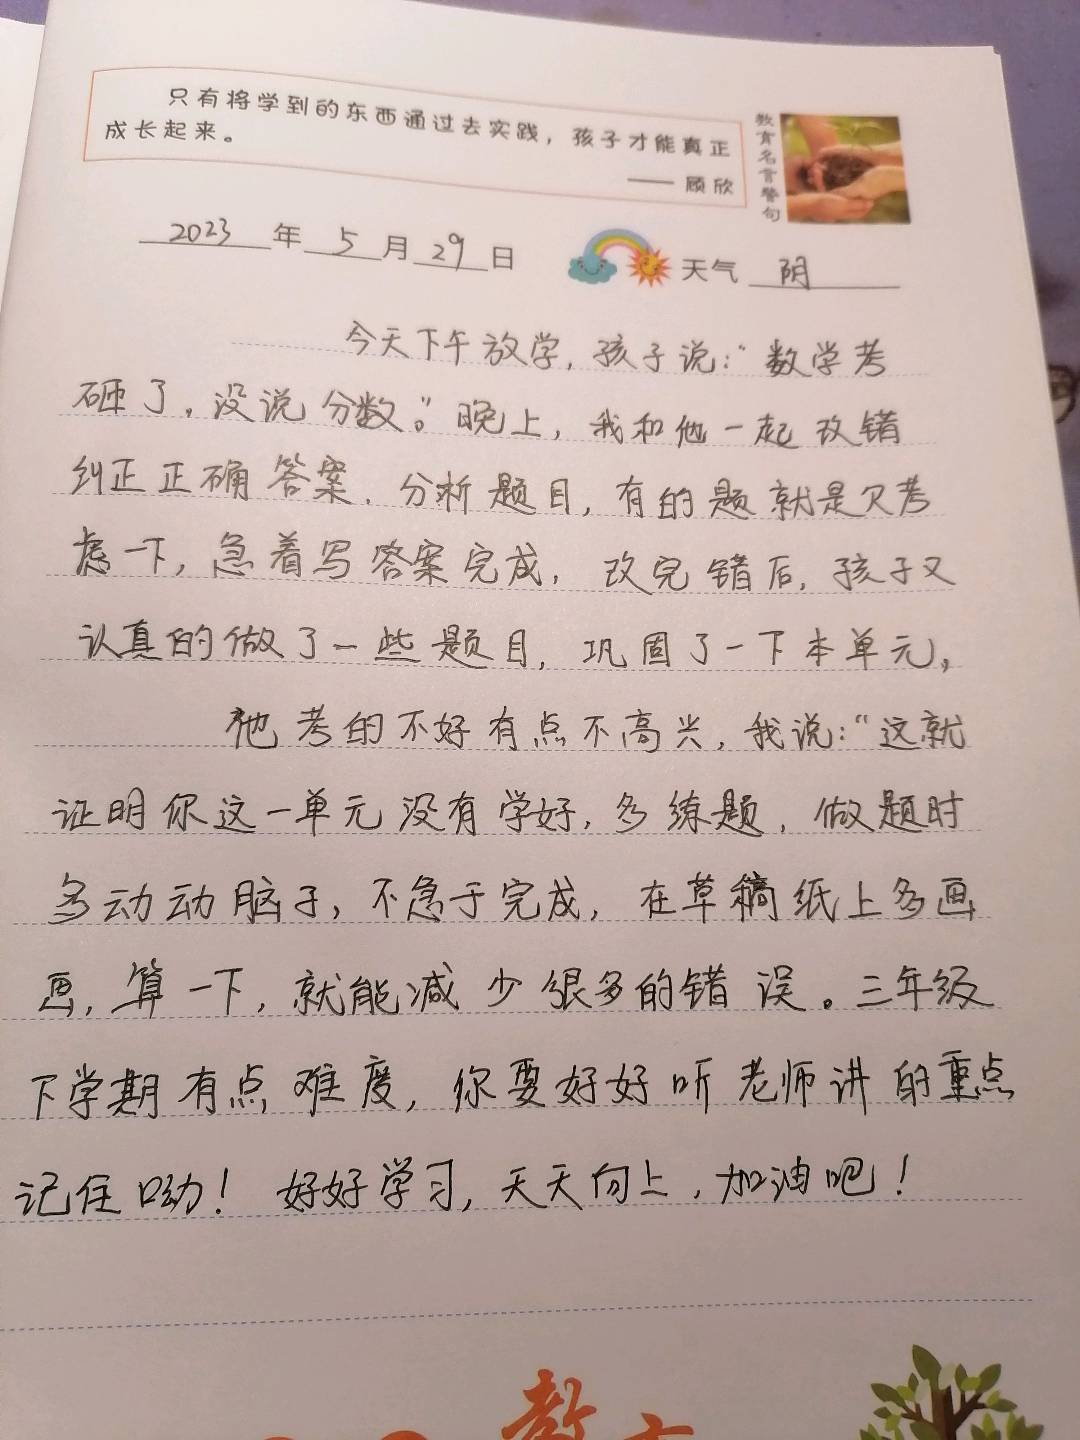 只有将学到的东西通过去实践，孩子才能真正
成长起来。
—— 顾欣
教育名言警句
2023 年 5 月 29 日
天气 阴
今天下午放学，孩子说：“数学考
砸了，没说分数。”晚上，我和他一起改错
纠正正确答案，分析题目，有的题就是欠考
虑一下，急着写答案完成，改完错后，孩子又
认真的做了一些题目，巩固了一下本单元，
他考的不好有点不高兴，我说：“这就
证明你这一单元没有学好，多练题，做题时
多动动脑子，不急于完成，在草稿纸上多画
画，算一下，就能减少很多的错误。三年级
下学期有点难度，你要好好听老师讲的重点
记住呦！好好学习，天天向上，加油吧！
教